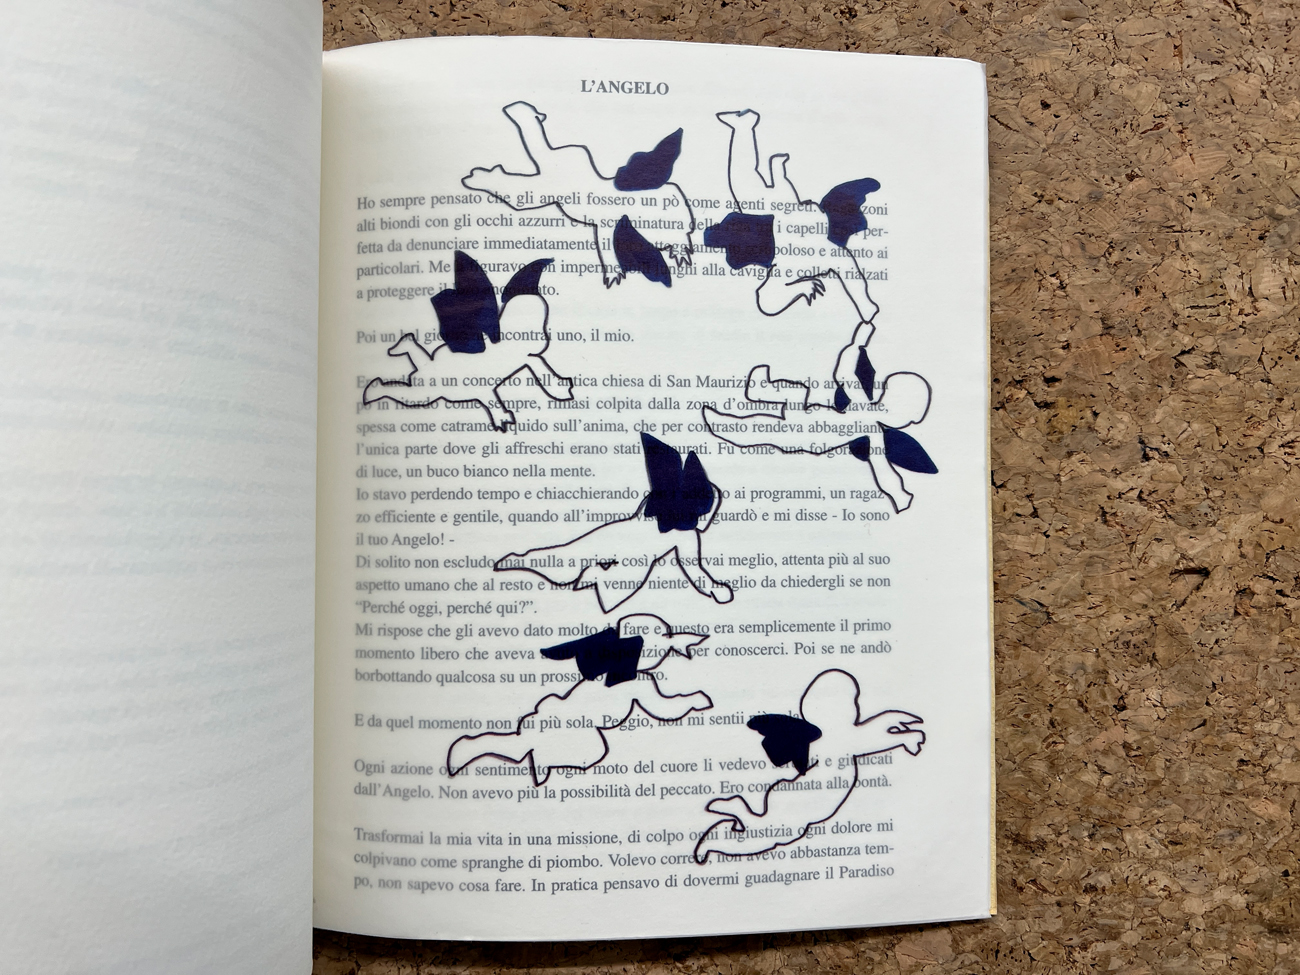 L'ANGELO
Ho sempre pensato che gli angeli fossero un pò come agenti segreti. zoni
alti biondi con gli occhi azzurri e la scriminatura della i capelli per-
fetta da denunciare immediatamente il atteggiamento poloso e attento ai
particolari. Me figuravo con impermeabili lunghi alla caviglia e colletti rialzati
a proteggere il
Poi un bel gio incontrai uno, il mio.
Ero andata a un concerto nell'antica chiesa di San Maurizio e quando arrivai un
pò in ritardo come sempre, rimasi colpita dalla zona d'ombra lungo le navate,
spessa come catrame liquido sull'anima, che per contrasto rendeva abbagliante
l'unica parte dove gli affreschi erano stati restaurati. Fu come una folgorazione
di luce, un buco bianco nella mente.
Io stavo perdendo tempo e chiacchierando ai programmi, un ragaz-
zo efficiente e gentile, quando all'improvviso guardò e mi disse - Io sono
il tuo Angelo! -
Di solito non escludo mai nulla a priori così lo osservai meglio, attenta più al suo
aspetto umano che al resto e non mi venne niente di meglio da chiedergli se non
“Perché oggi, perché qui?”.
Mi rispose che gli avevo dato molto da fare e questo era semplicemente il primo
momento libero che aveva per conoscerci. Poi se ne andò
borbottando qualcosa su un prossimo
E da quel momento non fui più sola. Peggio, non mi sentii più sola
Ogni azione ogni sentimento ogni moto del cuore li vedevo e giudicati
dall'Angelo. Non avevo più la possibilità del peccato. Ero condannata alla bontà.
Trasformai la mia vita in una missione, di colpo ogni ingiustizia ogni dolore mi
colpivano come spranghe di piombo. Volevo correre, non avevo abbastanza tem-
po, non sapevo cosa fare. In pratica pensavo di dovermi guadagnare il Paradiso